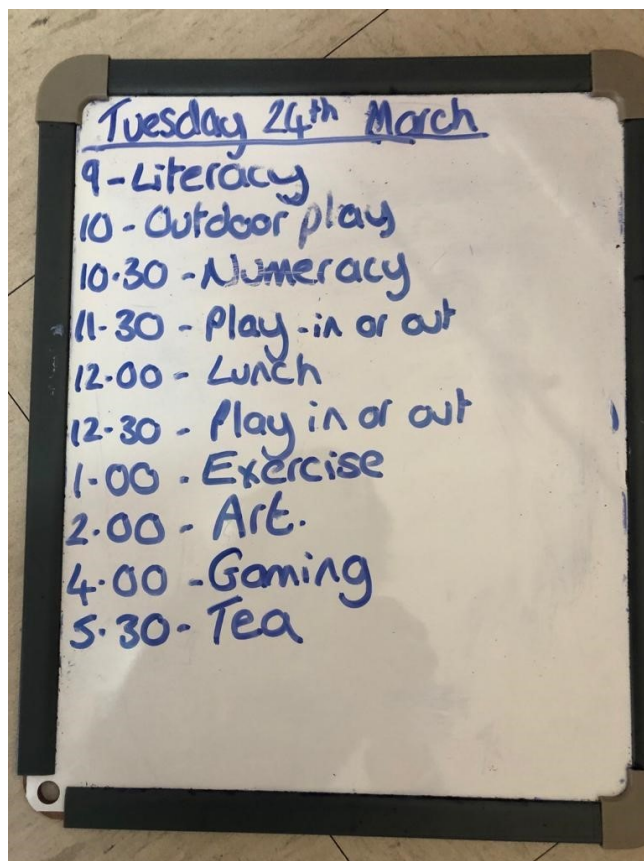 Tuesday 24th March
9 - Literacy
10 - Outdoor play
10.30 - Numeracy
11.30 - Play - in or out
12.00 - Lunch
12.30 - Play in or out
1.00 - Exercise
2.00 - Art.
4.00 - Gaming
5.30 - Tea